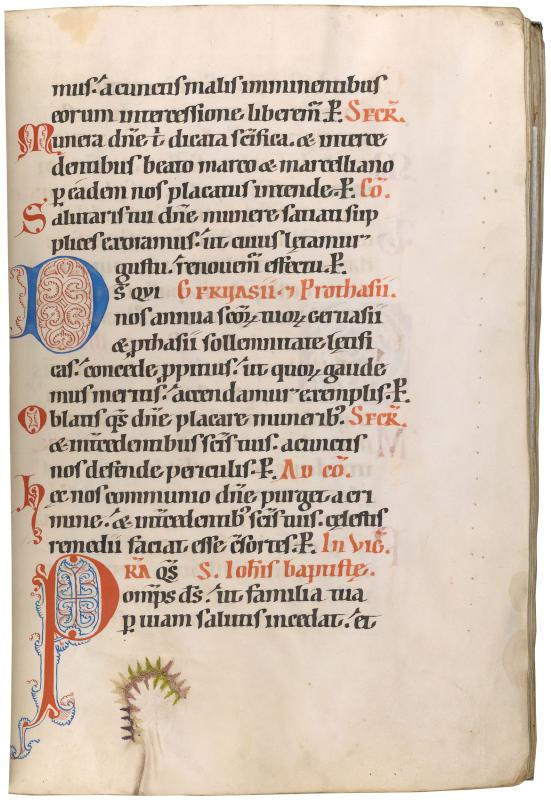 mus. a cunctis malis imminentibus
eorum intercessione liberem̅. P̶. SECR̅.
Munera dn̅e t̅ dicata sc̅ifica. & interce
dentibus beato marco & marcelliano
ꝑ eadem nos placatus intende. P̶. Co̅.
Salutaris tui dn̅e munere satiati sup
plices exoramus. ut cuius lętamur
gustu. renouem̅ effectu. P̶.
Ds̅ QVI GERVASII ⁊ Prothasii.
nos annua sc̅oꝝ tuoꝝ geruasii
& ꝓthasii sollemnitate lętifi
cas. concede ꝓpitius. ut quoꝝ gaude
mus meritis. accendamur exemplis. P̶.
Oblatis qs̅ dn̅e placare munerib;. SECR̅.
& int̅cedentibus sc̅is tuis. a cunctis
nos defende periculis. P̶. AD CO̅.
Hęc nos communio dn̅e purget a cri
mine. & int̅cedentib; sc̅is tuis. cęlestis
remedii faciat esse c̅sortes. P̶. In VIG̅.
PRA̅ qs̅ S. Ioh̅is baptistę.
omp̅s ds̅. ut familia tua
ꝑ uiam salutis incedat. et